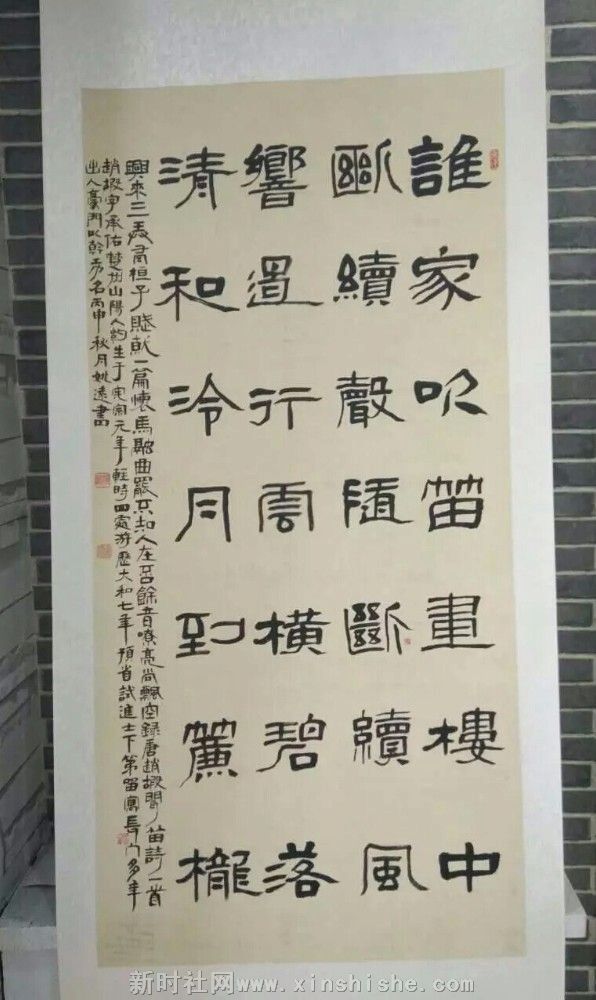 誰家吹笛畫樓中
斷續聲隨斷續風
響遏行雲橫碧落
清和泠月到簾櫳
興來三弄有桓子賦就一篇懷馬融曲罷不知人在否餘音嘹亮尚飄空錄唐趙嘏聞笛詩一首
趙嘏字承佑楚州山陽人約生于宪宗元年輊時四處游歷大和七年預省試進士下第留寓長安多年
出入豪門以幹功名丙申秋月姚遠書
新时社网www.xinshishe.com